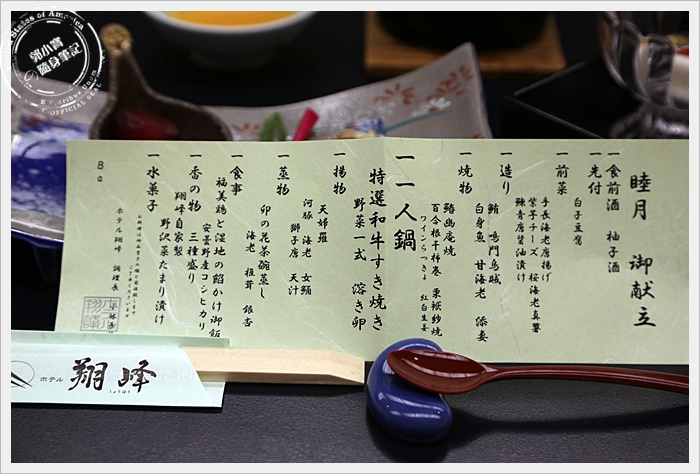 睦月 御献立
一食前酒 柚子酒
一先付
白子豆腐
一前菜
手長海老唐揚げ
紫芋チーズ 桜海老真薯
辣青唐醤油漬け
一造り
鮪 鳴門烏賊
白身魚 甘海老 添妻
一焼物
鰆幽庵焼
百合根干柿巻 栗板紗焼
ワインらっきょ 紅白生姜
一一人鍋
特選和牛すき焼き
野菜一式 溶き卵
一揚物
天婦羅
河豚 海老 女鰯
獅子唐 天汁
一蒸物
卯の花茶碗蒸し
海老 椎茸 銀杏
一食事
福美鶏と湿地の餡かけ御飯
安曇野産コシヒカリ
一香の物 三種盛り
翔峰自家製
野沢菜たまり漬け
一水菓子
ホテル翔峰 調理長
Ba
ホテル 翔峰
郭小寶
隨身筆記
OFFICIAL SEAL